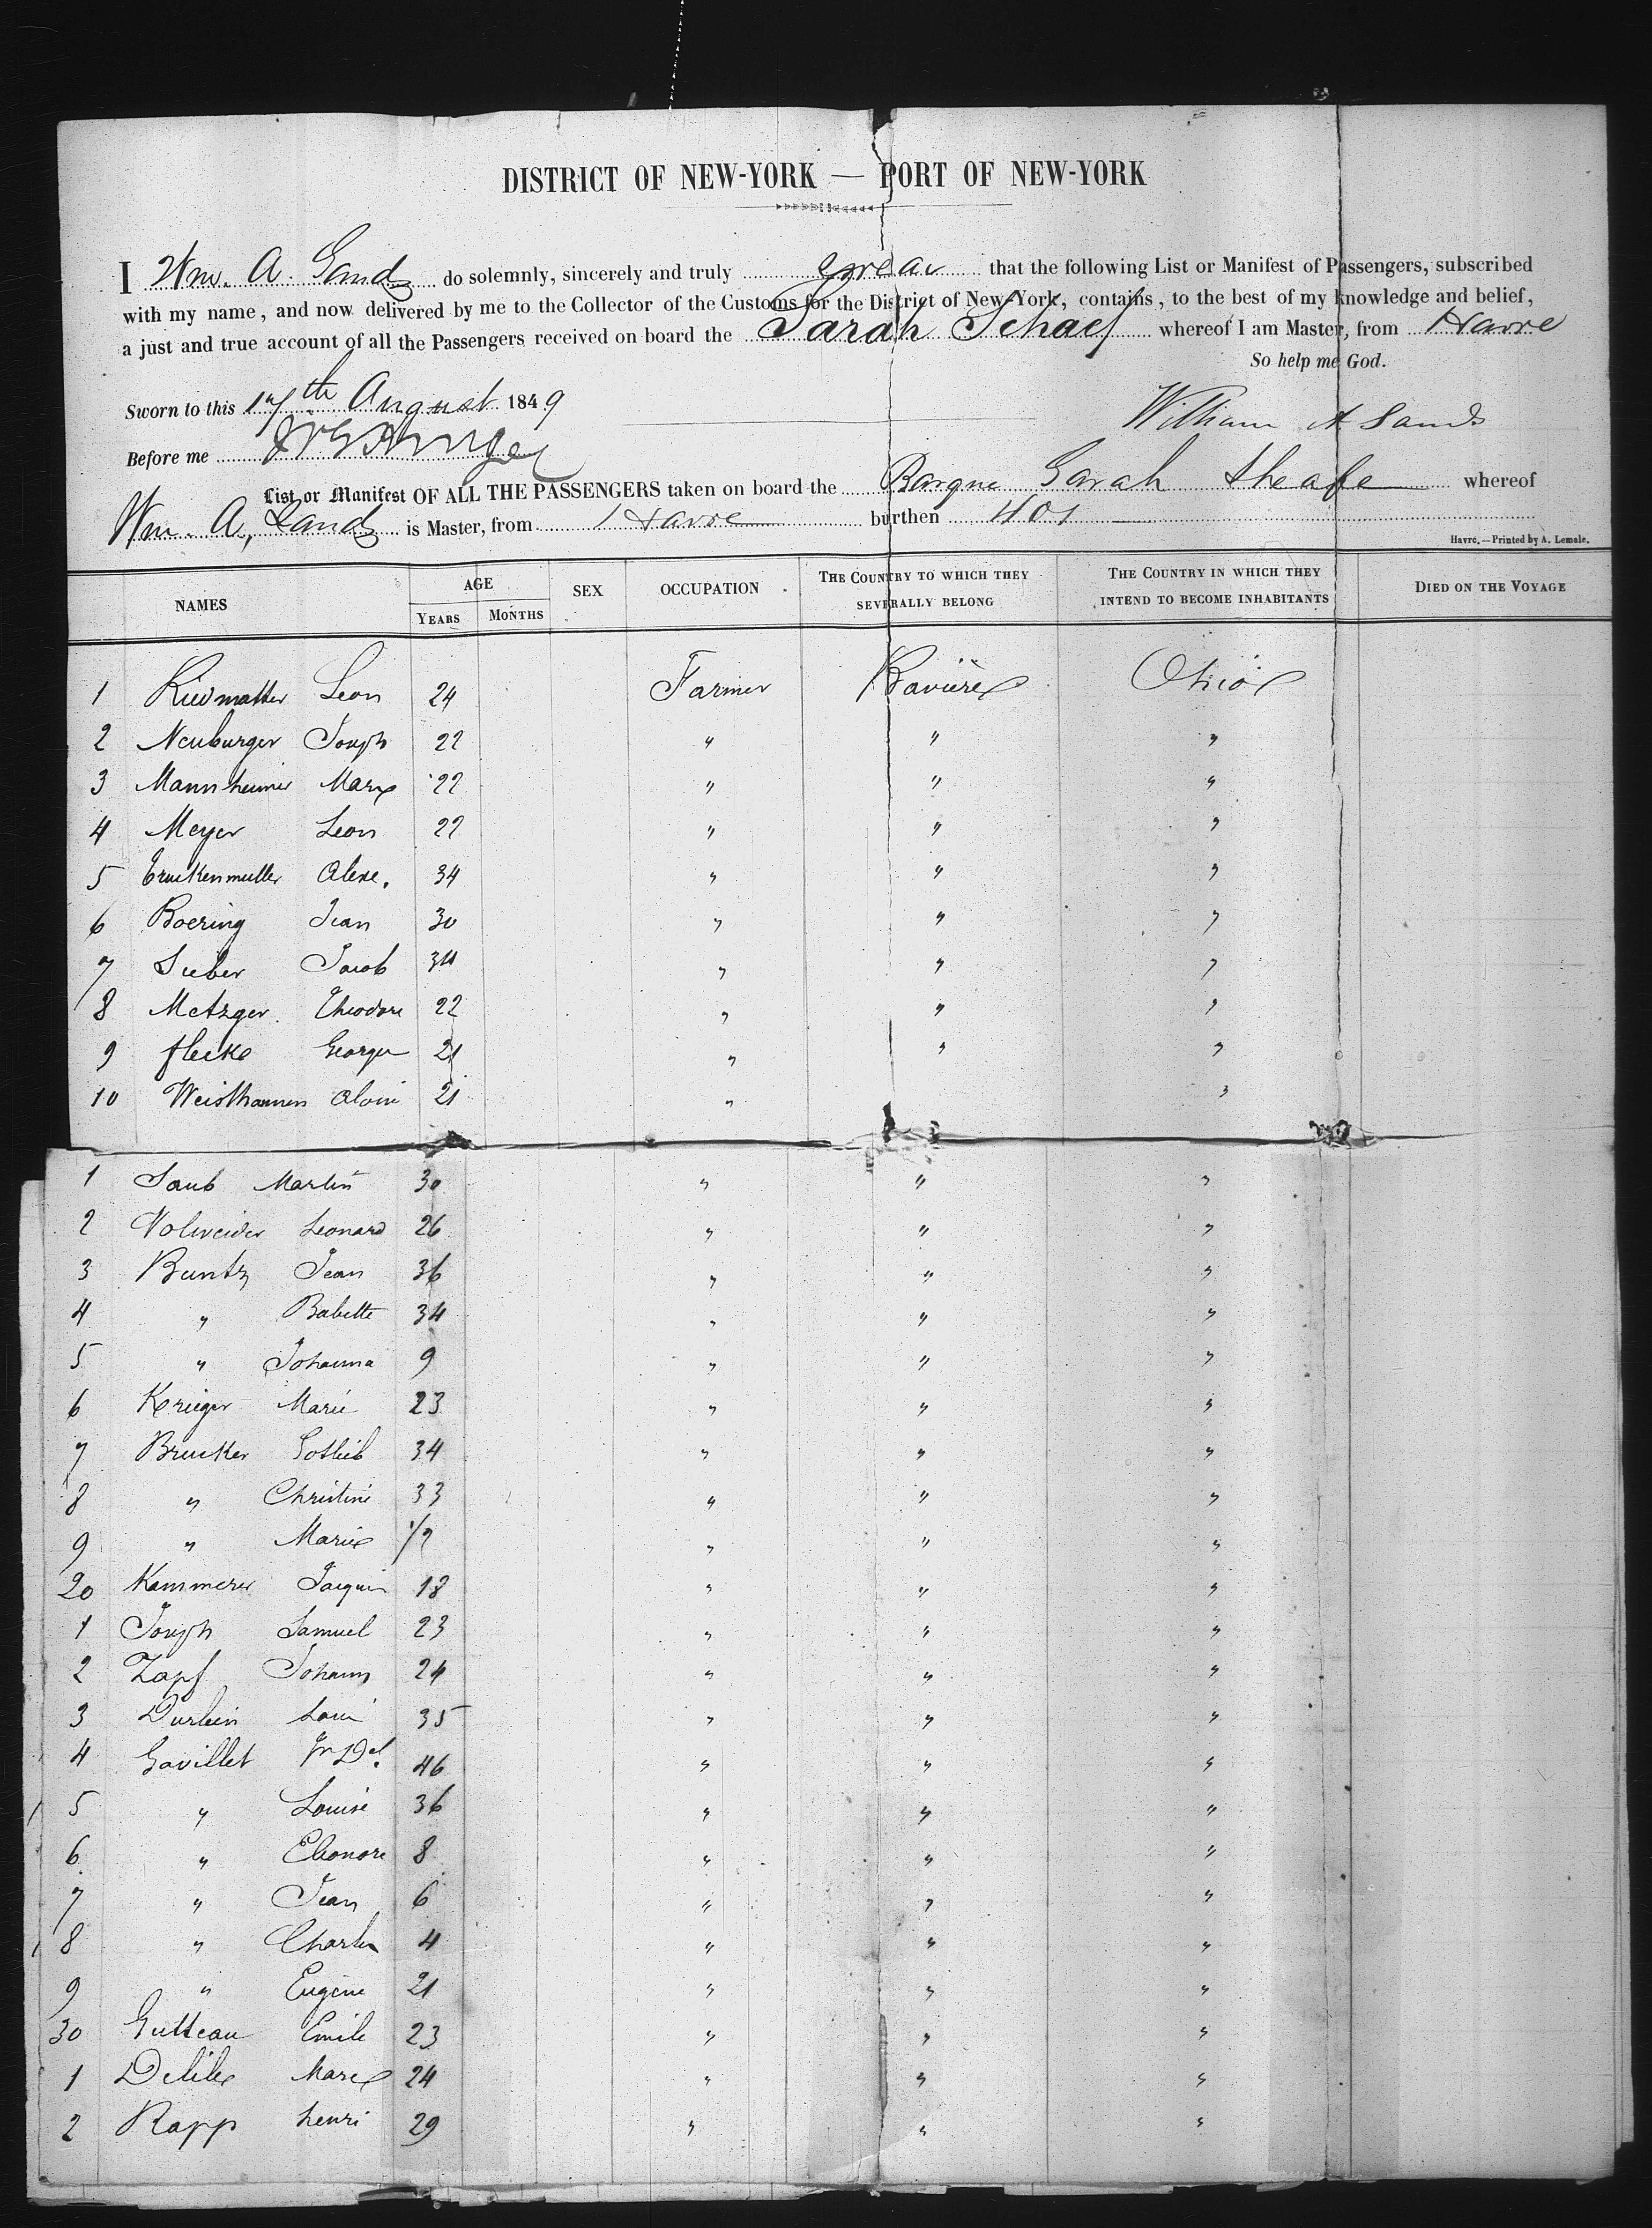 DISTRICT OF NEW-YORK — PORT OF NEW-YORK
I Wm. A. Sands do solemnly, sincerely and truly swear that the following List or Manifest of Passengers, subscribed
with my name, and now delivered by me to the Collector of the Customs for the District of New-York, contains, to the best of my knowledge and belief,
a just and true account of all the Passengers received on board the Sarah Schaef whereof I am Master, from Havre
So help me God.
Sworn to this 17th August 1849
William A Sands
Before me
List or Manifest OF ALL THE PASSENGERS taken on board the Barque Sarah Sheafe whereof
Wm. A, Sands is Master, from Havre burthen 401
Havre.—Printed by A. Lemale.
NAMES AGE YEARS MONTHS SEX OCCUPATION THE COUNTRY TO WHICH THEY SEVERALLY BELONG THE COUNTRY IN WHICH THEY INTEND TO BECOME INHABITANTS DIED ON THE VOYAGE
1 Riedmatter Leon 24 Farmer Bavière Ohio
2 Neuburger Joseph 22 " " "
3 Mannheimer Marx 22 " " "
4 Meyer Leon 22 " " "
5 Bruckenmuller Alexe. 34 " " "
6 Boering Jean 30 " " "
7 Sieber Jacob 34 " " "
8 Metzger Theodore 22 " " "
9 flecke George 21 " " "
10 21 " "
1 Saub Martin 30 " " "
2 Volweider Leonard 26 " " "
3 Buntz Jean 36 " " "
4 " Babette 34 " " "
5 " Johanna 9 " " "
6 Krieger Marie 23 " " "
7 Brucker Gotlieb 34 " " "
8 " Christine 33 " " "
9 " Marie 1/2 " " "
20 Kammerer Jacques 18 " " "
1 Joseph Samuel 23 " " "
2 Zapf Johann 24 " " "
3 Durlein Louis 35 " " "
4 Gavillet 46 " " "
5 " Louise 36 " " "
6 " Eleonore 8 " " "
7 " Jean 6 " " "
8 " Charles 4 " " "
9 " Eugène 21 " " "
30 Gutteau Emile 23 " " "
1 Delile Marie 24 " " "
2 Rapp henri 29 " " "